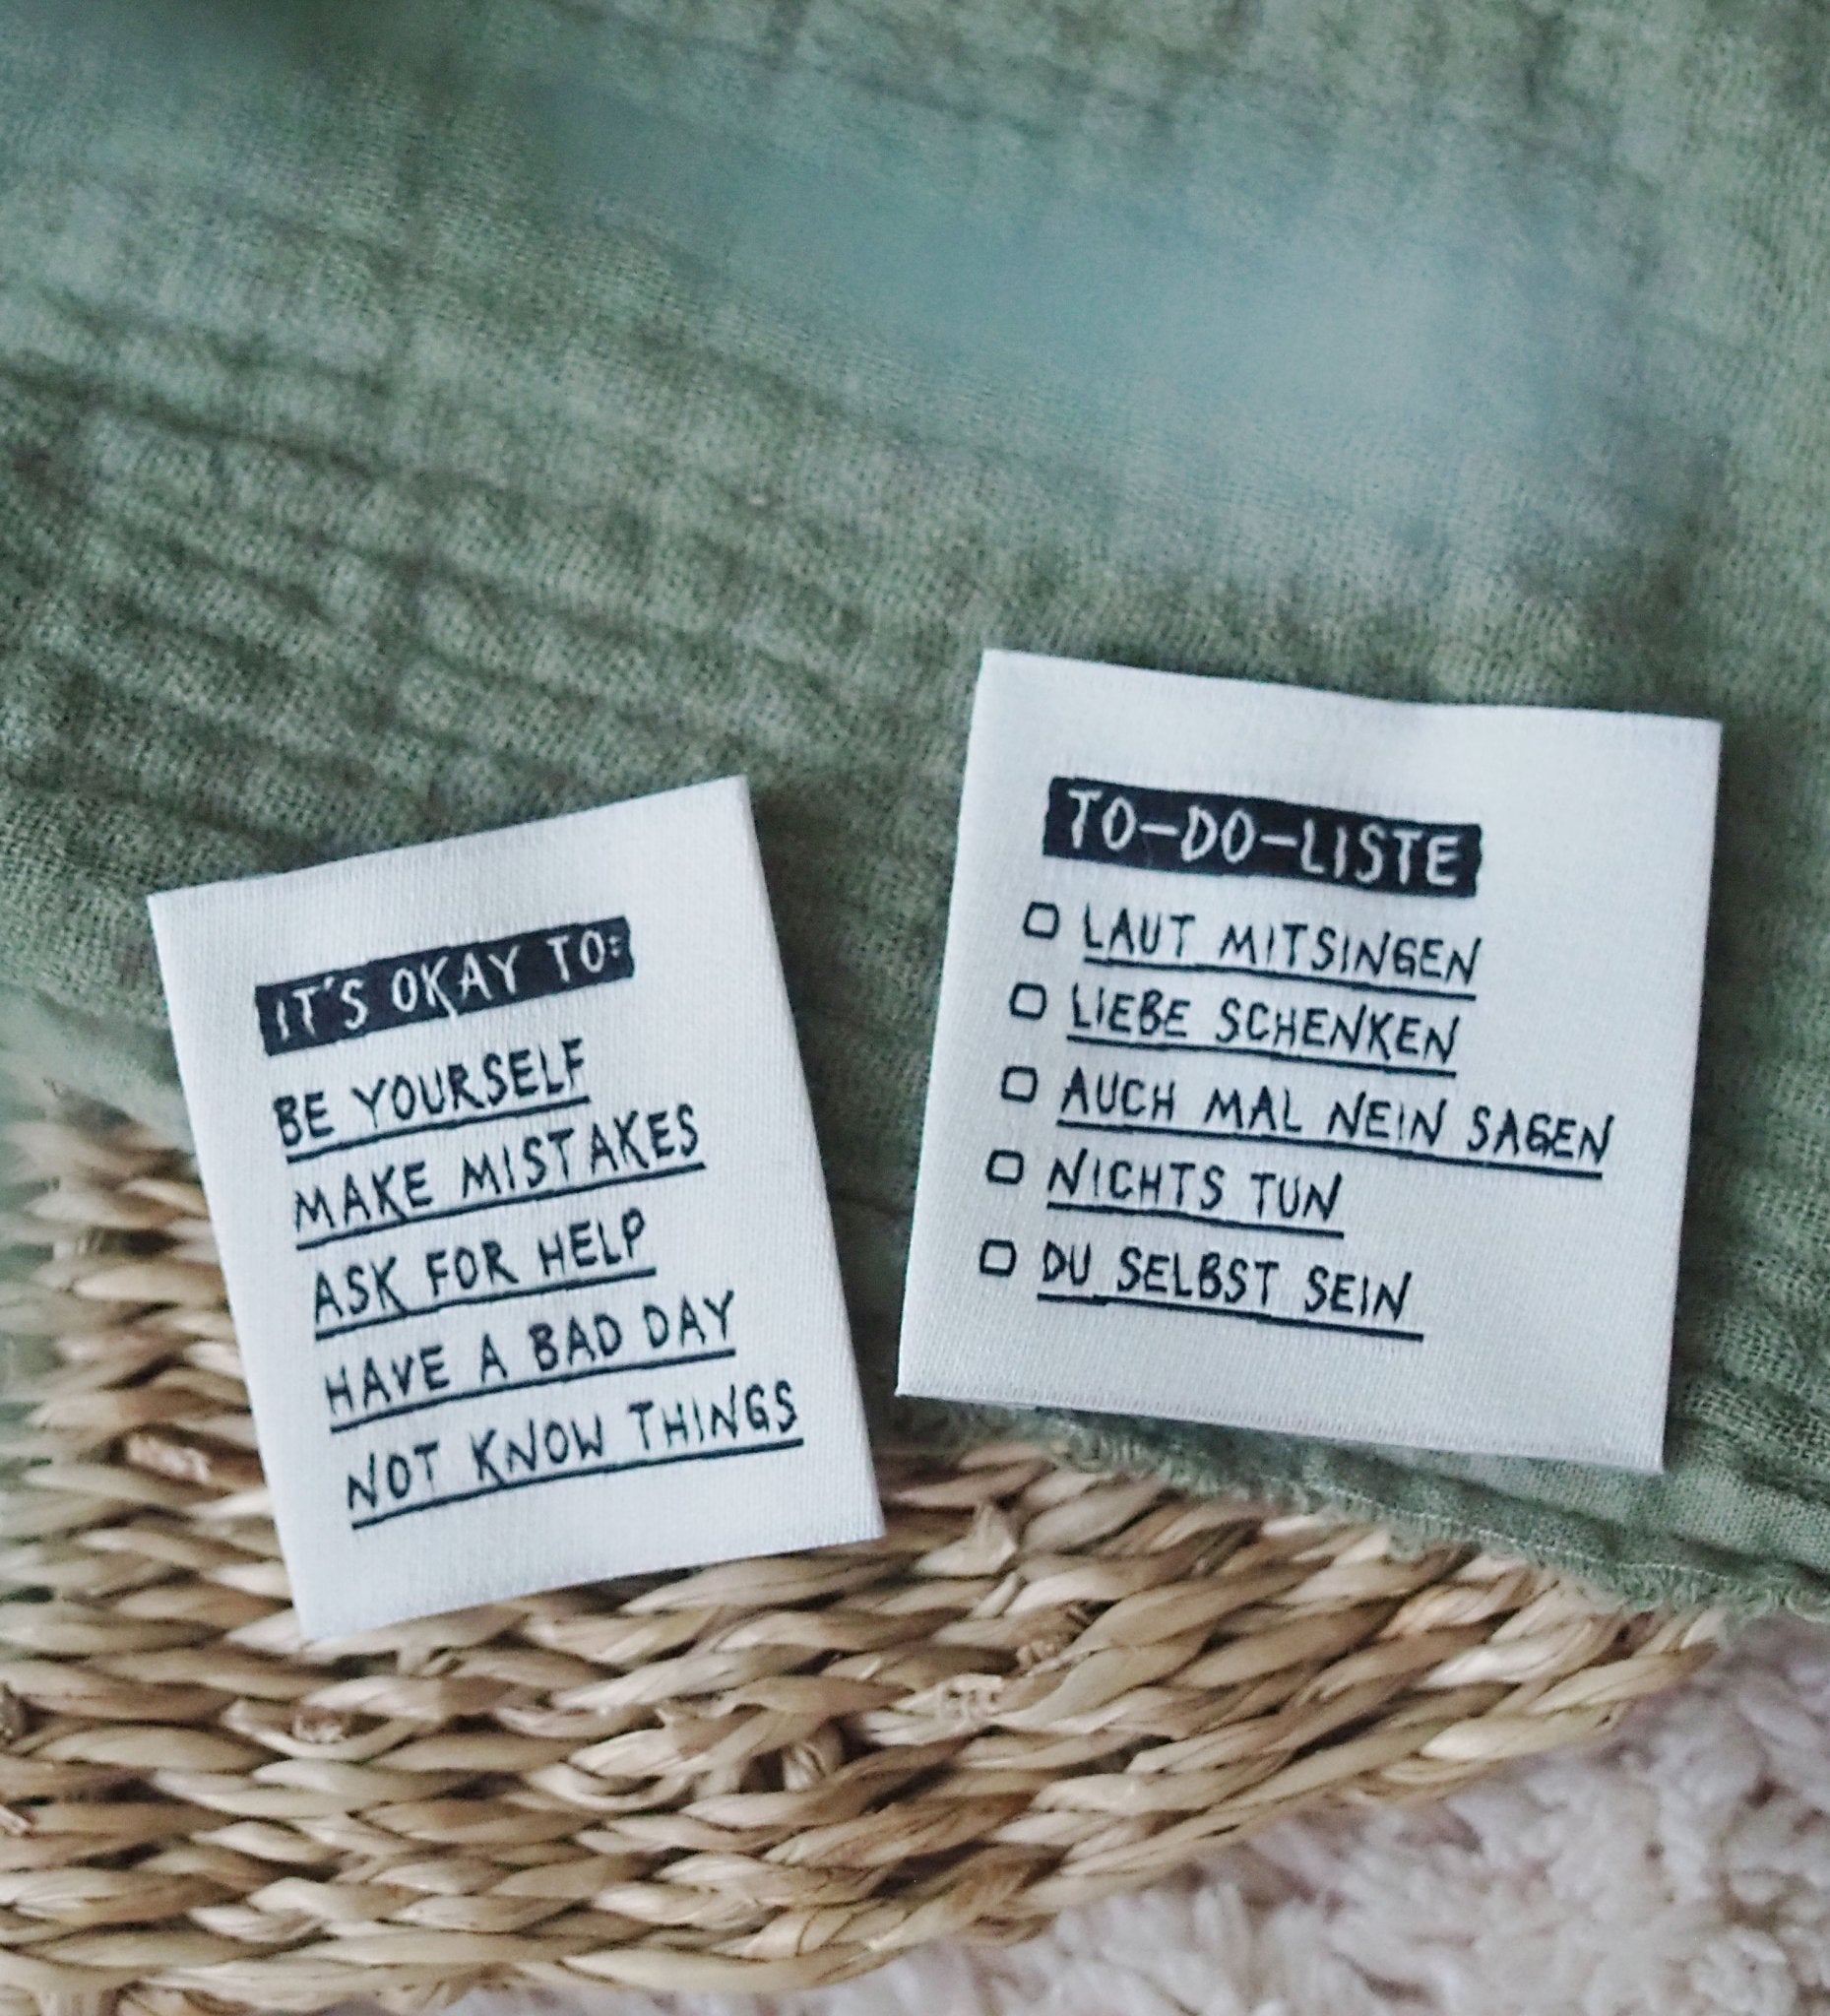 IT'S OKAY TO:
BE YOURSELF
MAKE MISTAKES
ASK FOR HELP
HAVE A BAD DAY
NOT KNOW THINGS
TO-DO-LISTE
LAUT MITSINGEN
LIEBE SCHENKEN
AUCH MAL NEIN SAGEN
NICHTS TUN
DU SELBST SEIN